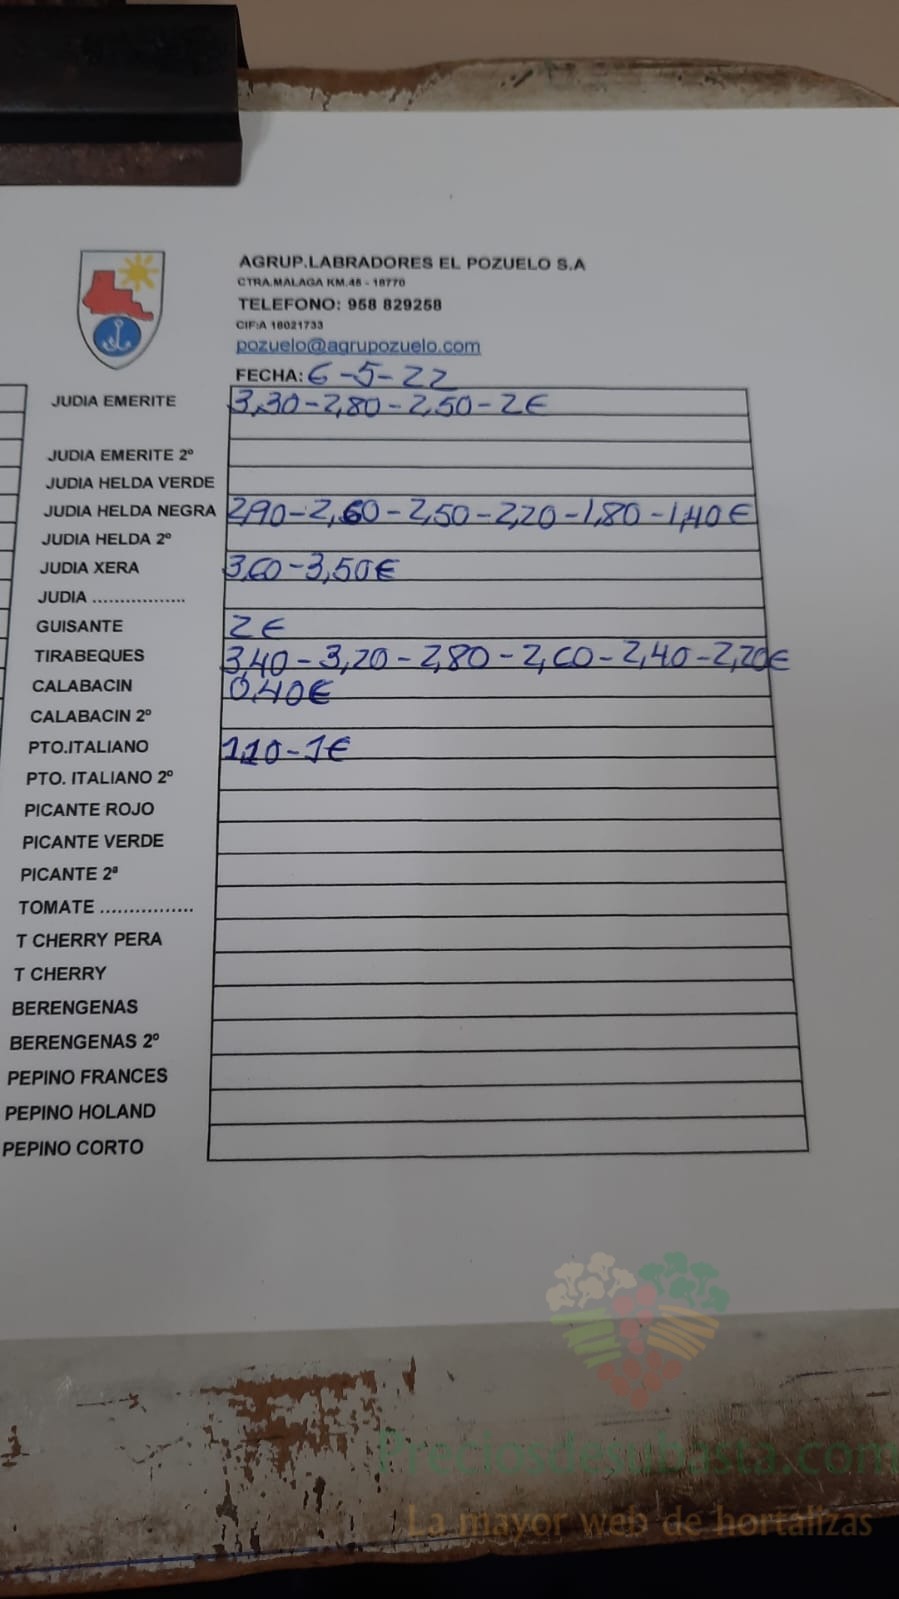 AGRUP.LABRADORES EL POZUELO S.A
CTRA.MALAGA KM.46 - 18770
TELEFONO: 958 829258
CIF:A 18021733
pozuelo@agrupozuelo.com
FECHA: 6-5-22
JUDIA EMERITE 3,30-2,80-2,50-2€
JUDIA EMERITE 2º
JUDIA HELDA VERDE
JUDIA HELDA NEGRA 2,90-2,60-2,50-2,20-1,80-1,40€
JUDIA HELDA 2º
JUDIA XERA 3,60-3,50€
JUDIA .................
GUISANTE 2€
TIRABEQUES 3,40-3,20-2,80-2,60-2,40-2,20€
CALABACIN 0,40€
CALABACIN 2º
PTO.ITALIANO 1,10-1€
PTO. ITALIANO 2º
PICANTE ROJO
PICANTE VERDE
PICANTE 2ª
TOMATE ................
T CHERRY PERA
T CHERRY
BERENGENAS
BERENGENAS 2º
PEPINO FRANCES
PEPINO HOLAND
PEPINO CORTO
Preciosdesubasta.com
La mayor web de hortalizas